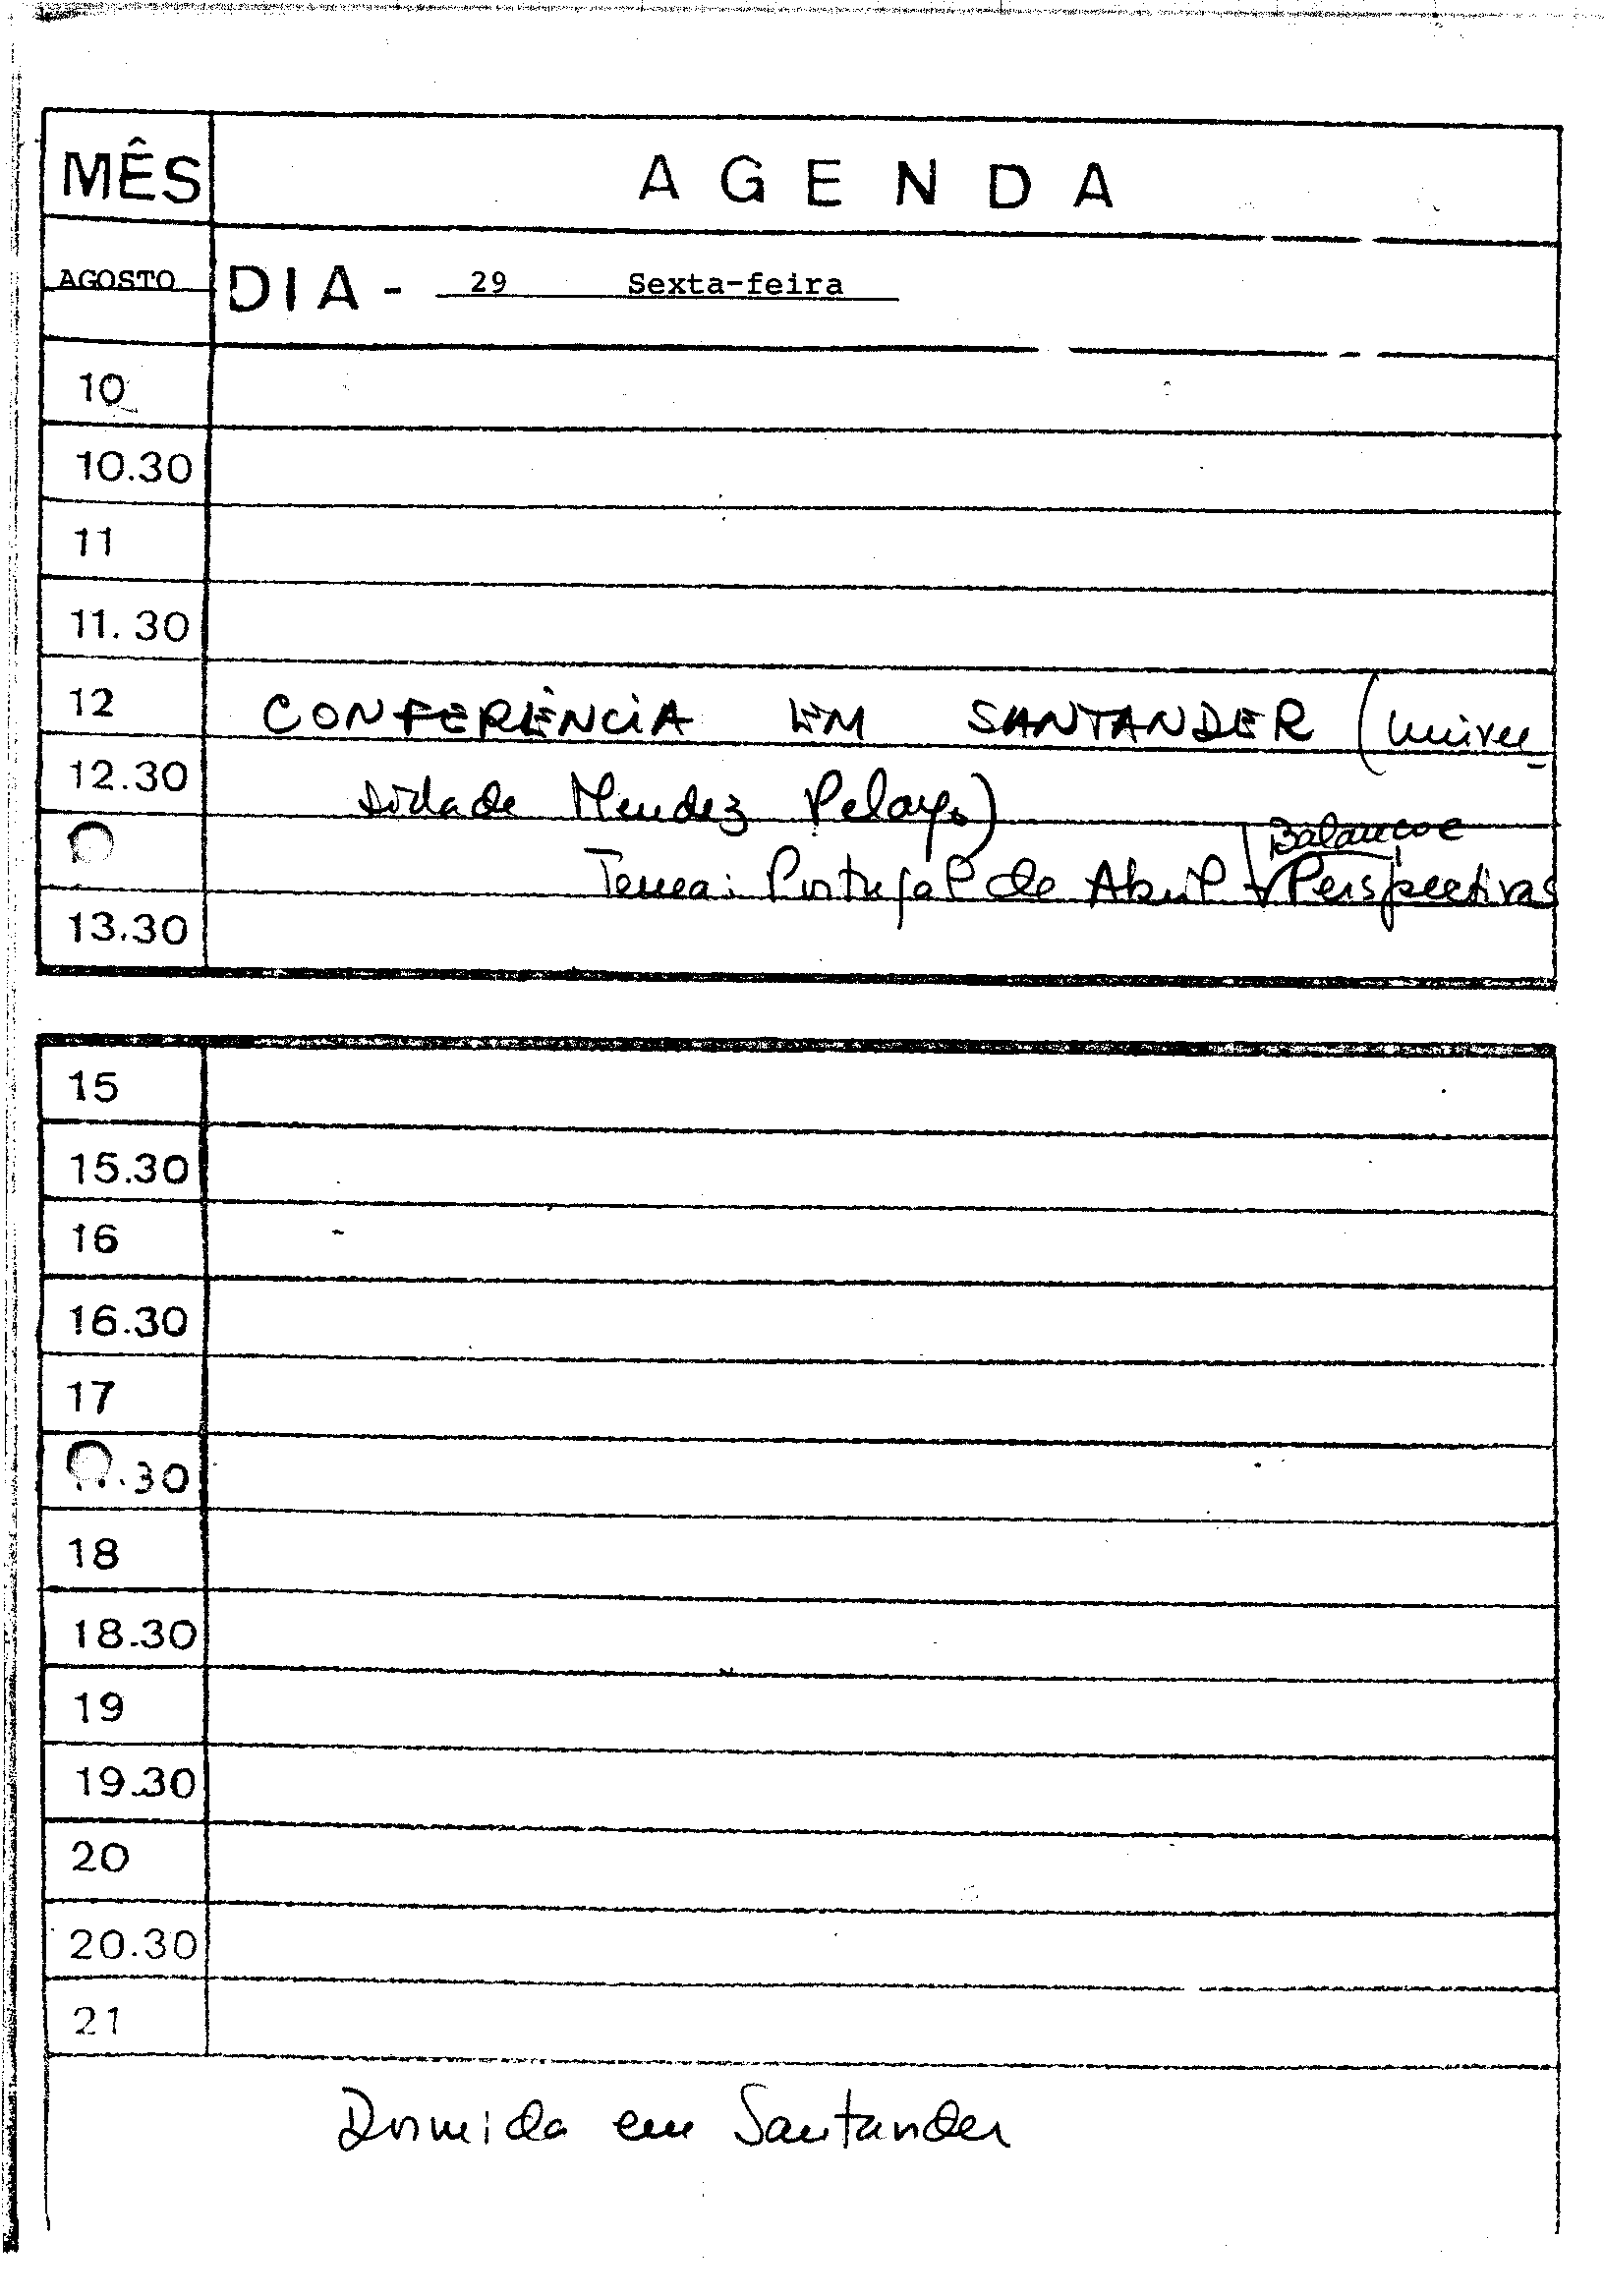 MÊS AGENDA
AGOSTO DIA - 29 Sexta-feira
10
10.30
11
11.30
12 CONFERÊNCIA EM SANTANDER (Univer-
12.30 sidade Mendez Pelayo)
Balanço e
Tema: Portugal de Abril - Perspectivas
13.30
15
15.30
16
16.30
17
.30
18
18.30
19
19.30
20
20.30
21
Dormida em Santander